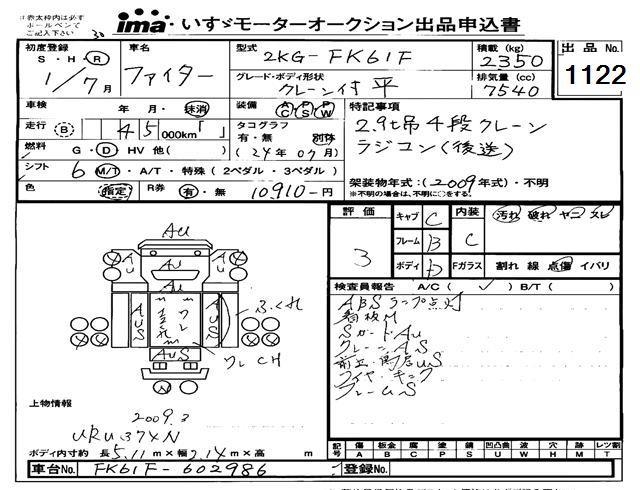 ※赤太枠内は必ず
ボールペンで
ご記入下さい
ima いすゞモーターオークション出品申込書
初度登録 車名 型式 積載(kg) 出品No.
S・H・R 2KG-FK61F 2350
1/7月 ファイター グレード・ボディ形状 排気量(cc) 1122
クレーン付 平 7540
車検 年 月・抹消 装備 AC PS PW 特記事項
走行 B 45 000km タコグラフ 有・無 別体 2.9t吊 4段クレーン
燃料 G・D HV 他( ) (24年07月) ラジコン(後送)
シフト 6 M/T・A/T・特殊(2ペダル・3ペダル) 架装物年式:(2009年式)・不明
色 指定 R券 有・無 10910-円 ※不明の場合は、不明に○をする。
評価 キャブ C 内装 汚れ 破れ ヤニ スレ
3 フレーム B C
ボディ D Fガラス 割れ 線 点傷 イバリ
検査員報告 A/C( ✓ ) B/T( )
ABSランプ点灯
看板M
SガードAu
クレーンAS
フレームS
AU
AU AU AU
AUS AUS
AUS
ふくれ
ワレCH
上物情報
2009.3
URU374N
ボディ内寸約 長 5.11m×幅 2.14m×高 m
記号 傷 板金 腐 塗 錆 凹凸曲 波 穴 跡 レツ割
A B C P S U W H M T
車台No. FK61F-602986 登録No.